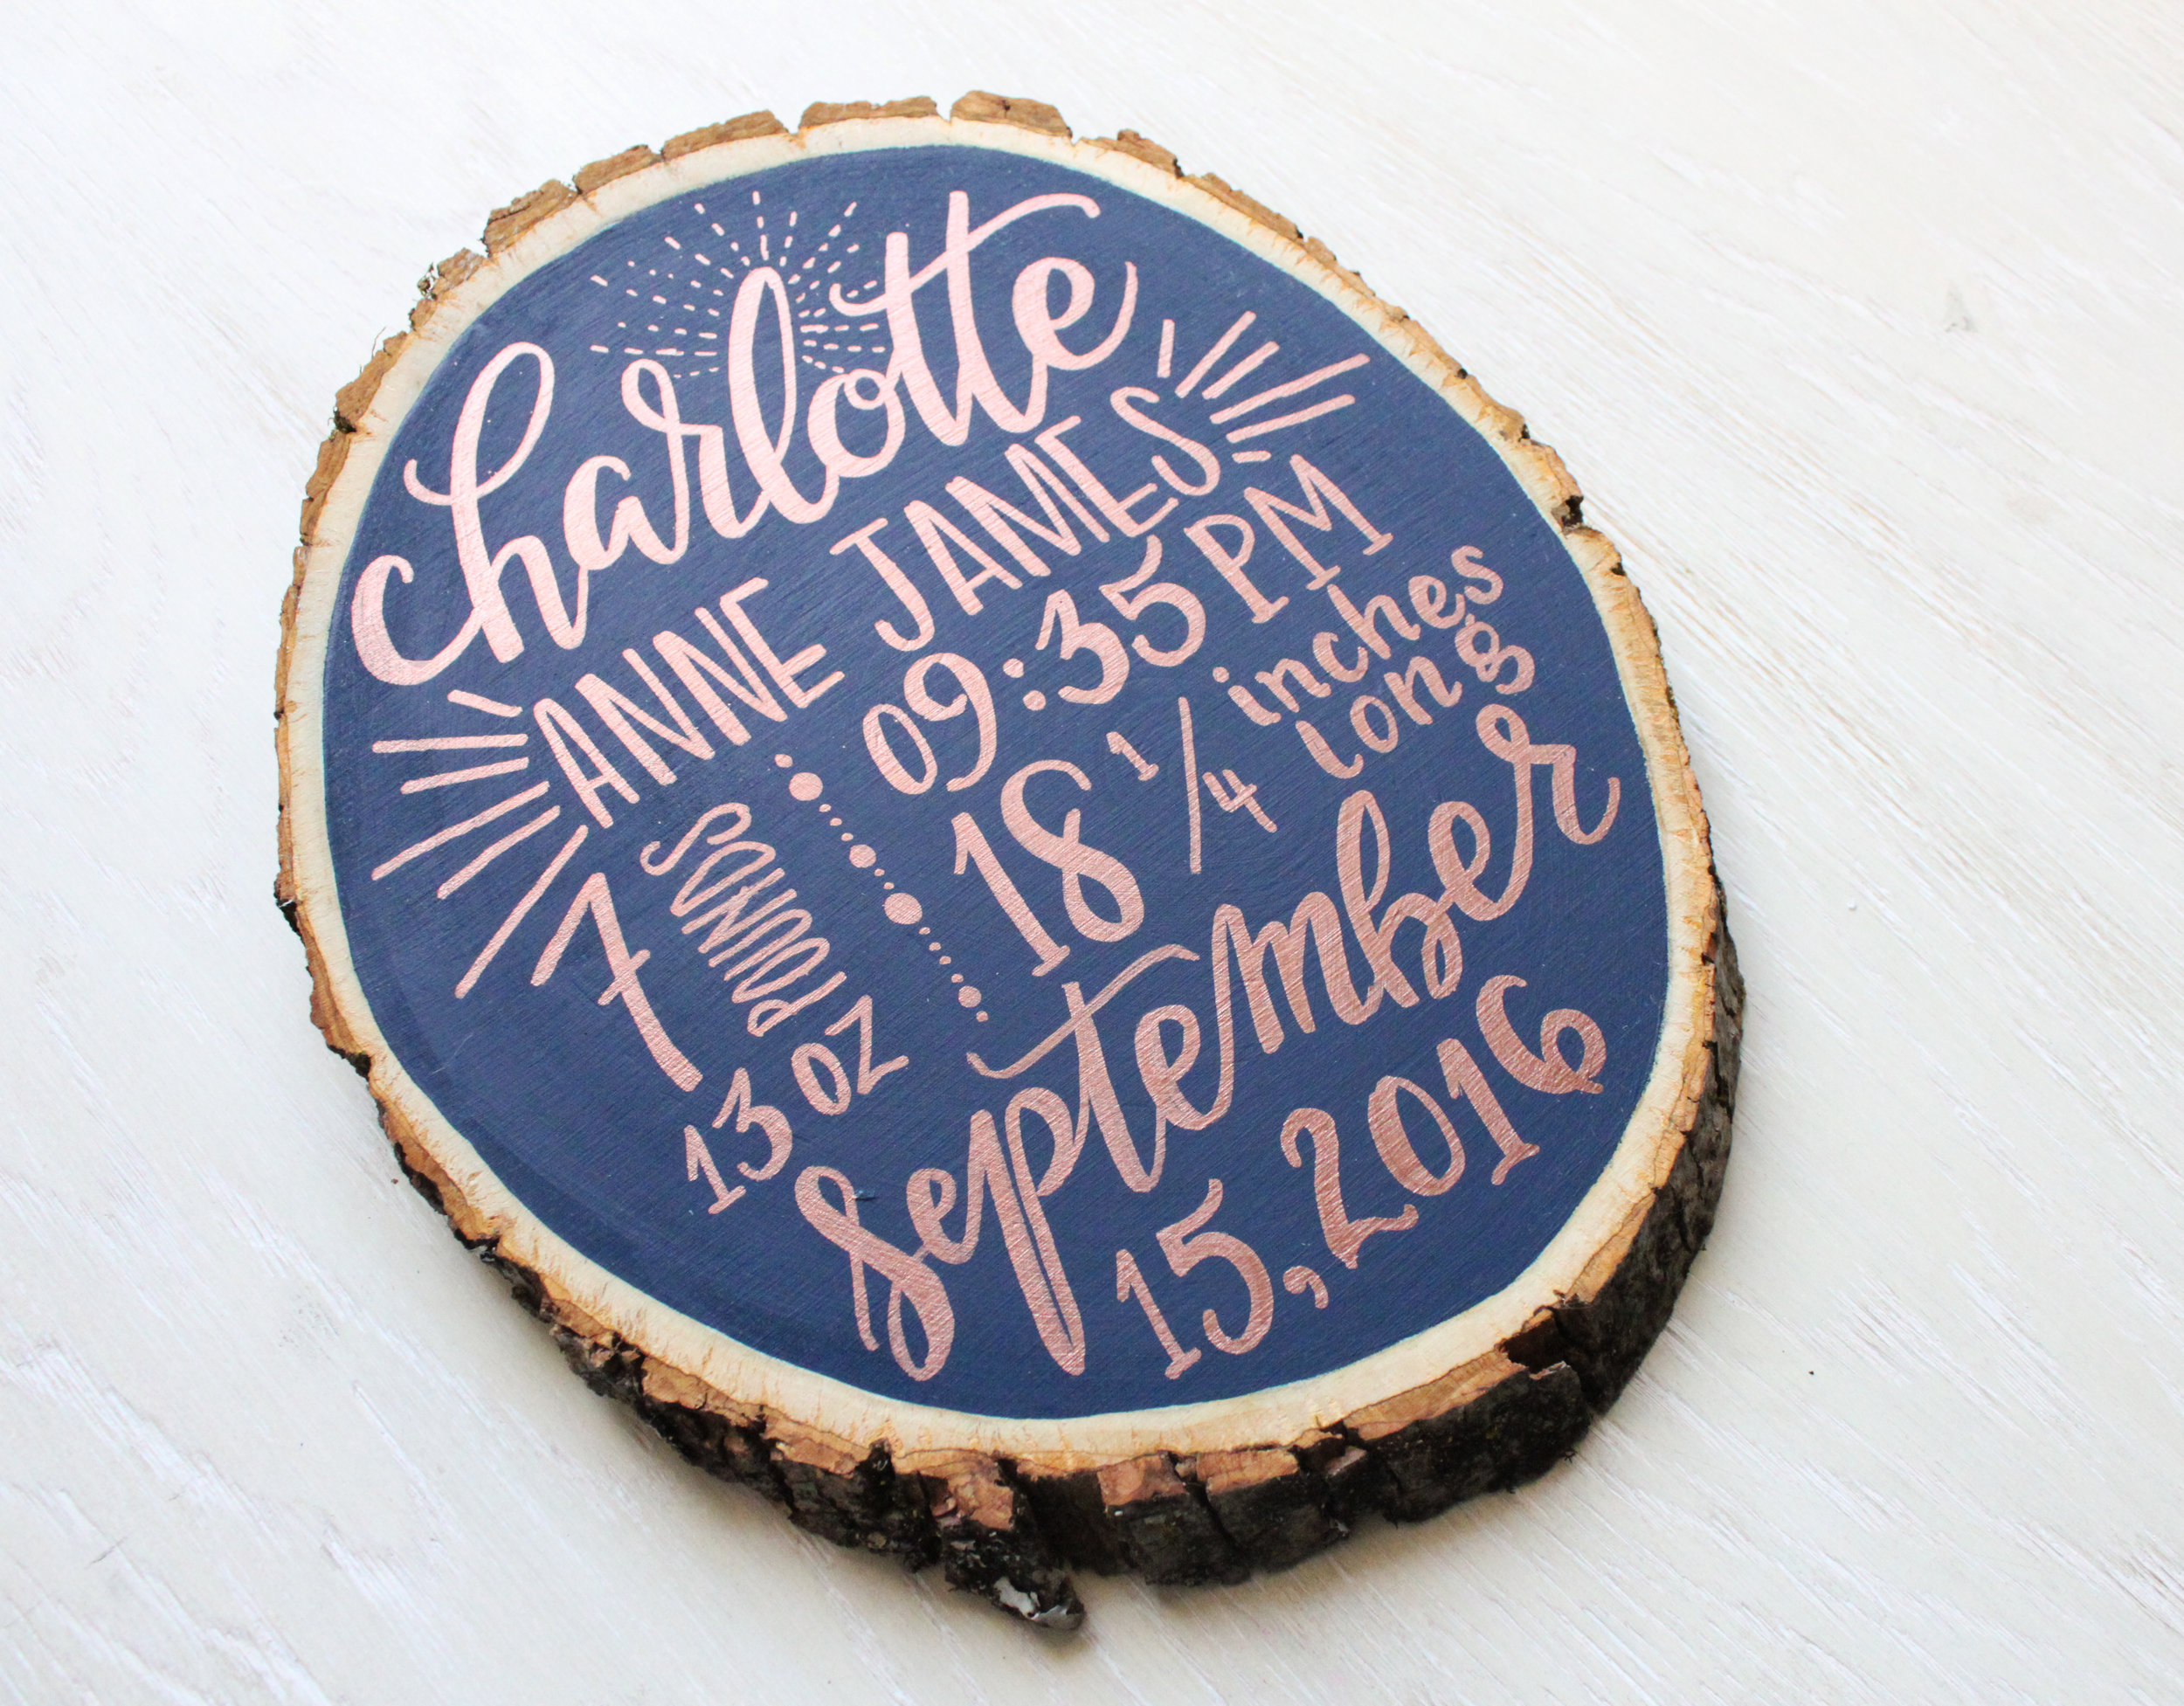 charlotte
ANNE JAMES
7 POUNDS
13 OZ
09:35 PM
18 1/4 inches
long
september
15, 2016